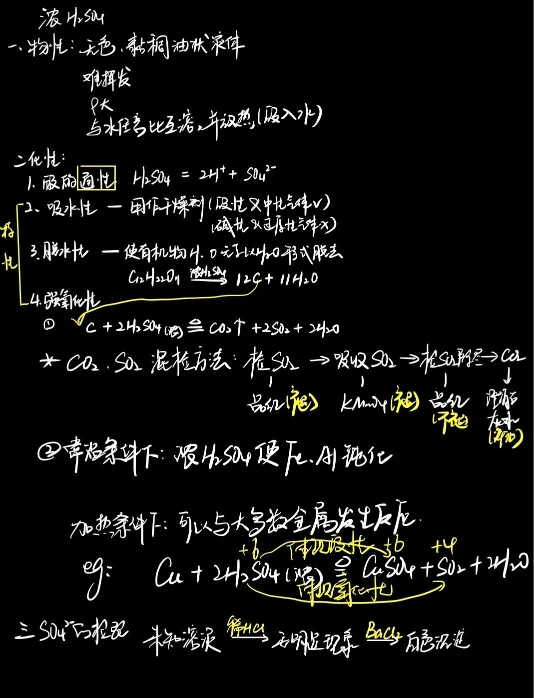 浓H₂SO₄
一、物性：无色、黏稠油状液体
难挥发
ρ大
与水任意比互溶，并放热(酸入水)
二化性：
1. 酸的通性 H₂SO₄ = 2H⁺ + SO₄²⁻
特性
2、吸水性 — 用作干燥剂(酸性又中性气体√)
(碱性又还原性气体×)
3.脱水性 — 使有机物H.O元素以H₂O形式脱去
C₁₂H₂₂O₁₁ 浓H₂SO₄→ 12C + 11H₂O
4.强氧化性
① C + 2H₂SO₄(浓) ≜ CO₂↑ + 2SO₂ + 2H₂O
* CO₂、SO₂混检方法：检SO₂ → 吸收SO₂ → 检SO₂除尽 → CO₂
品红(褪) KMnO₄(褪) 品红(不褪) 澄清石灰水
②常温条件下：浓H₂SO₄使Fe、Al钝化
加热条件下：可以与大多数金属发生反应.
+6 体现酸性 +6 +4
eg: Cu + 2H₂SO₄(浓) ≜ CuSO₄ + SO₂ + 2H₂O
体现氧化性
三 SO₄²⁻的检验 未知溶液 稀HCl→ 无明显现象 BaCl₂→ 白色沉淀